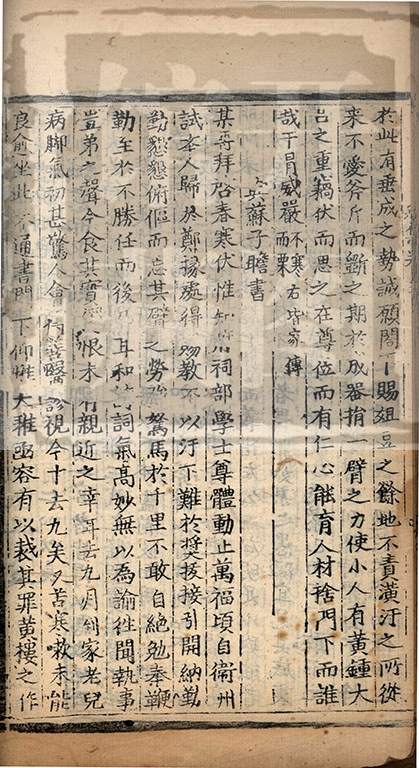 於此有垂成之勢誠願閤下賜俎豆之餘地不責潢汙之所從
來不愛斧斤而斲之期於成器捐一臂之力使小人有黃鍾大
呂之重藉伏而思之在尊位而有仁心能育人材捨門下而誰
哉干冐威嚴不寒而栗右皆家傳
與蘇子瞻書
某再拜啓春寒伏惟知府祠部學士尊體動止萬福頃自衛州
試舉人歸於鄭掾處得賜教不以汙下難於獎援接引開納勤
勤懇懇俯傴而忘其臂之勞駑馬於千里不敢自絕勉奉鞭
勒至於不勝任而後已耳和詩詞氣高妙無以爲諭往聞執事
豈弟之聲今食其實恨未有親近之幸耳去九月到家老兒
病脚氣初甚驚人會得善醫診視今十去九矣又苦寒嗽未能
良愈坐此通書門下仰惟大雅函容有以裁其罪黃樓之作